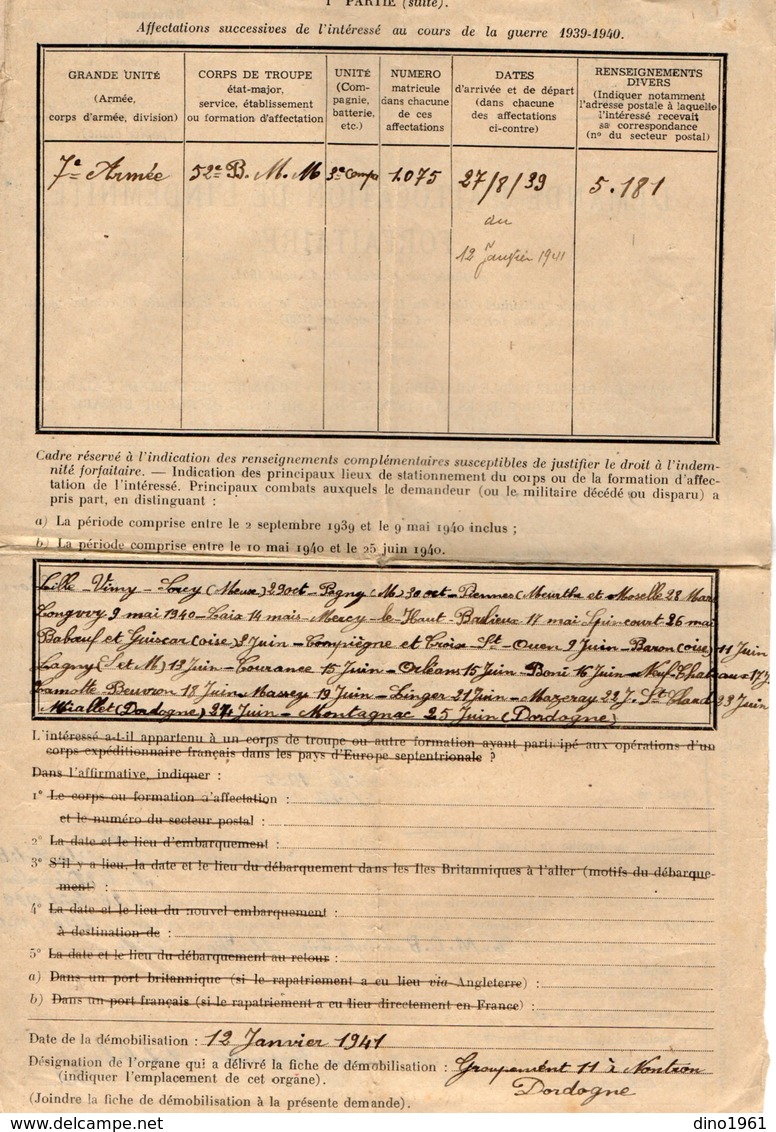 1re PARTIE (suite).
Affectations successives de l'intéressé au cours de la guerre 1939-1940.
GRANDE UNITÉ
(Armée,
corps d'armée, division)
CORPS DE TROUPE
état-major,
service, établissement
ou formation d'affectation
UNITÉ
(Com-
pagnie,
batterie,
etc.)
NUMERO
matricule
dans chacune
de ces
affectations
DATES
d'arrivée et de départ
(dans chacune
des affectations
ci-contre)
RENSEIGNEMENTS
DIVERS
(Indiquer notamment
l'adresse postale à laquelle
l'intéressé recevait
sa correspondance
(no du secteur postal)
7e Armée
52e B. M. M
3e Comp
1.075
27/8/39
au
12 Janvier 1941
5.181
Cadre réservé à l'indication des renseignements complémentaires susceptibles de justifier le droit à l'indem-
nité forfaitaire. — Indication des principaux lieux de stationnement du corps ou de la formation d'affec-
tation de l'intéressé. Principaux combats auxquels le demandeur (ou le militaire décédé ou disparu) a
pris part, en distinguant :
a) La période comprise entre le 2 septembre 1939 et le 9 mai 1940 inclus ;
b) La période comprise entre le 10 mai 1940 et le 25 juin 1940.
Lille - Vimy - Sorcy (Meuse) 29 oct - Pagny (M) 30 oct - Piennes (Meurthe et Moselle 28 Mars
Longwy 9 mai 1940 - Laix 14 mais - Mercy-le-Haut - Baslieux 17 mai Spincourt 26 mai
Babœuf et Guiscar (oise) 8 Juin - Compiègne et Croix St-Ouen 9 Juin - Baron (oise) 11 Juin
Lagny (S et M) 13 Juin - Courance 15 Juin - Orléans 15 Juin - 16 Juin
Lamotte-Beuvron 18 Juin - Massey 19 Juin - Linger 21 Juin - Mazeray 22 J. St 23 Juin
Miallet (Dordogne) 24 Juin - Montagnac 25 Juin (Dordogne)
L'intéressé a-t-il appartenu à un corps de troupe ou autre formation ayant participé aux opérations d'un
corps expéditionnaire français dans les pays d'Europe septentrionale ?
Dans l'affirmative, indiquer :
1o Le corps ou formation d'affectation :
et le numéro du secteur postal :
2o La date et le lieu d'embarquement
3o S'il y a lieu, la date et le lieu du débarquement dans les Iles Britanniques à l'aller (motifs du débarque-
ment) :
4o La date et le lieu du nouvel embarquement :
à destination de :
5o La date et le lieu du débarquement au retour :
a) Dans un port britannique (si le rapatriement a eu lieu via Angleterre) :
b) Dans un port français (si le rapatriement a eu lieu directement en France) :
Date de la démobilisation : 12 Janvier 1941
Désignation de l'organe qui a délivré la fiche de démobilisation : Groupement 11 à Nontron
(indiquer l'emplacement de cet organe). Dordogne
(Joindre la fiche de démobilisation à la présente demande).
delcampe.net
dino1961